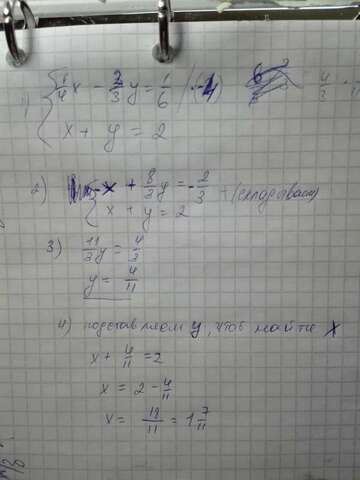 1) { 1/4 x - 2/3 y = 1/6 | · (-4)
x + y = 2
2) { -x + 8/3 y = -2/3 + (складываем)
x + y = 2
3) 11/3 y = 4/3
y = 4/11
4) подставляем y, чтоб найти x
x + 4/11 = 2
x = 2 - 4/11
x = 18/11 = 1 7/11